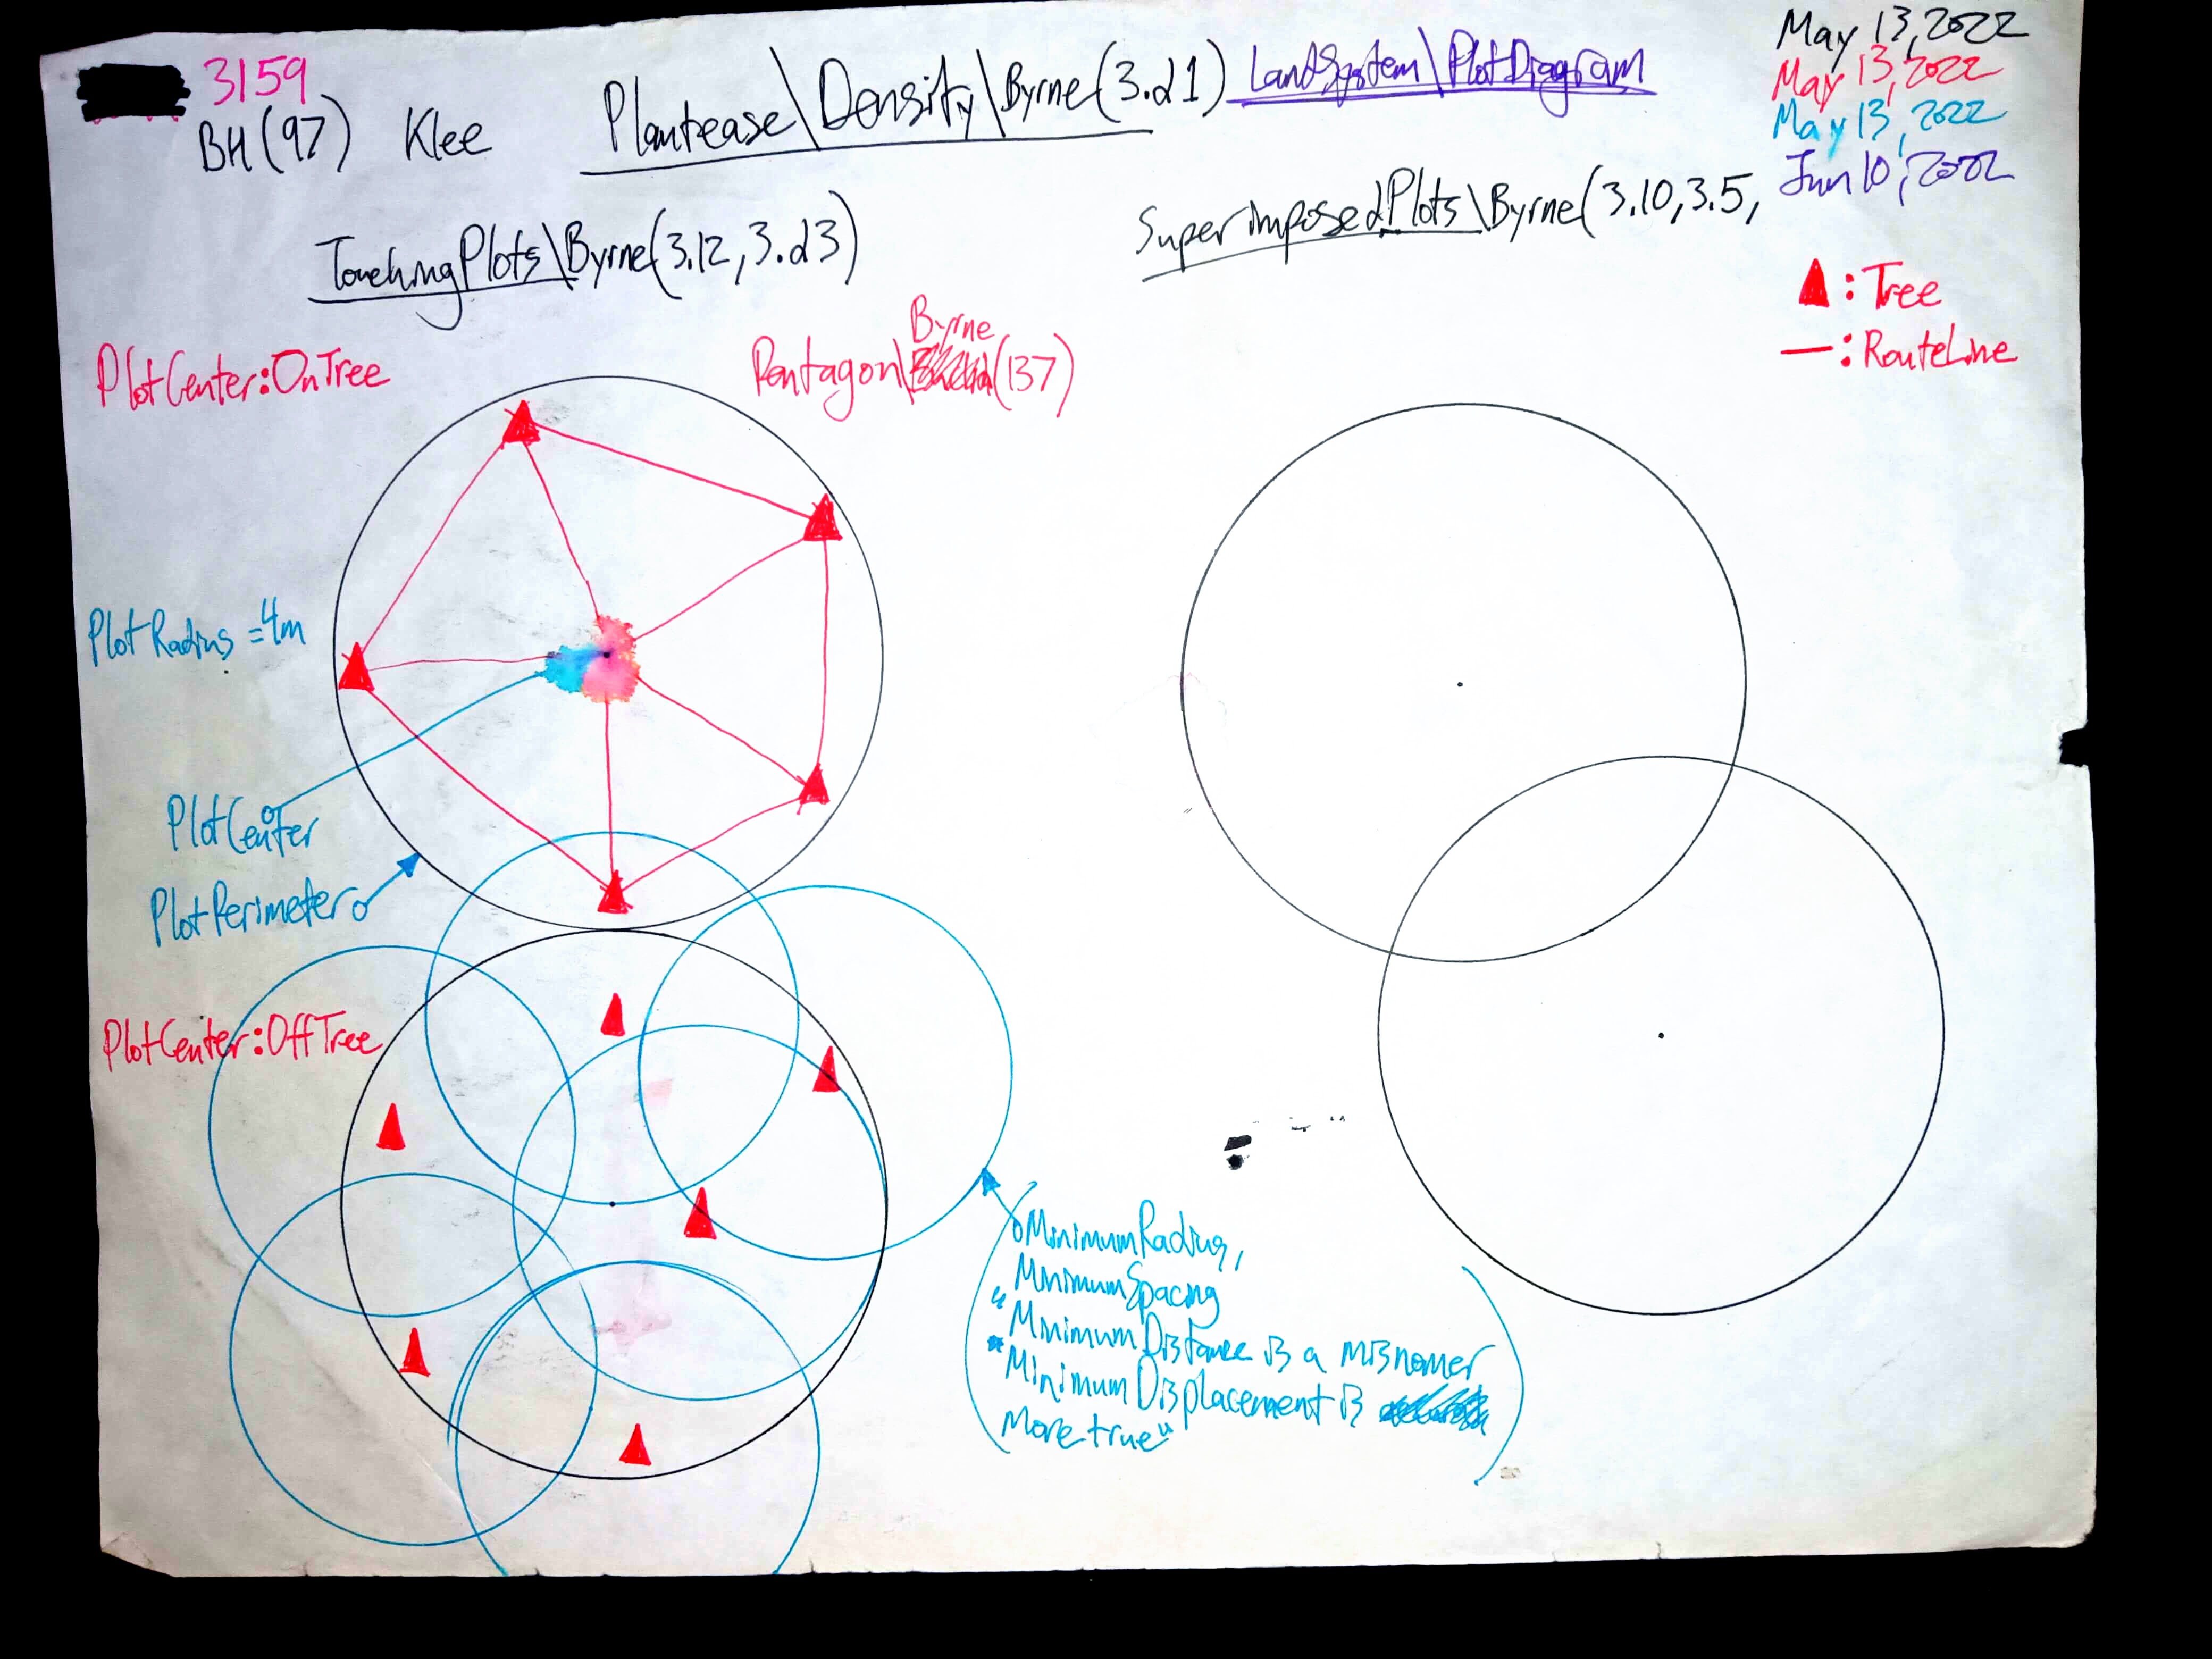 3159
BH(97) Klee
Plantease\Density\Byrne(3.d1) LandSystem\PlotDiagram
May 13, 2022
May 13, 2022
May 13, 2022
Jun 10, 2022
TouchingPlots\Byrne(3.12, 3.d3)
SuperimposedPlots\Byrne(3.10, 3.5,
▲: Tree
—: RouteLine
PlotCenter:OnTree
Byrne
Pentagon\(137)
PlotRadius = 4m
PlotCenter
PlotPerimeter
PlotCenter:OffTree
MinimumRadius,
MinimumSpacing
"MinimumDistance is a misnomer
MinimumDisplacement is
more true"